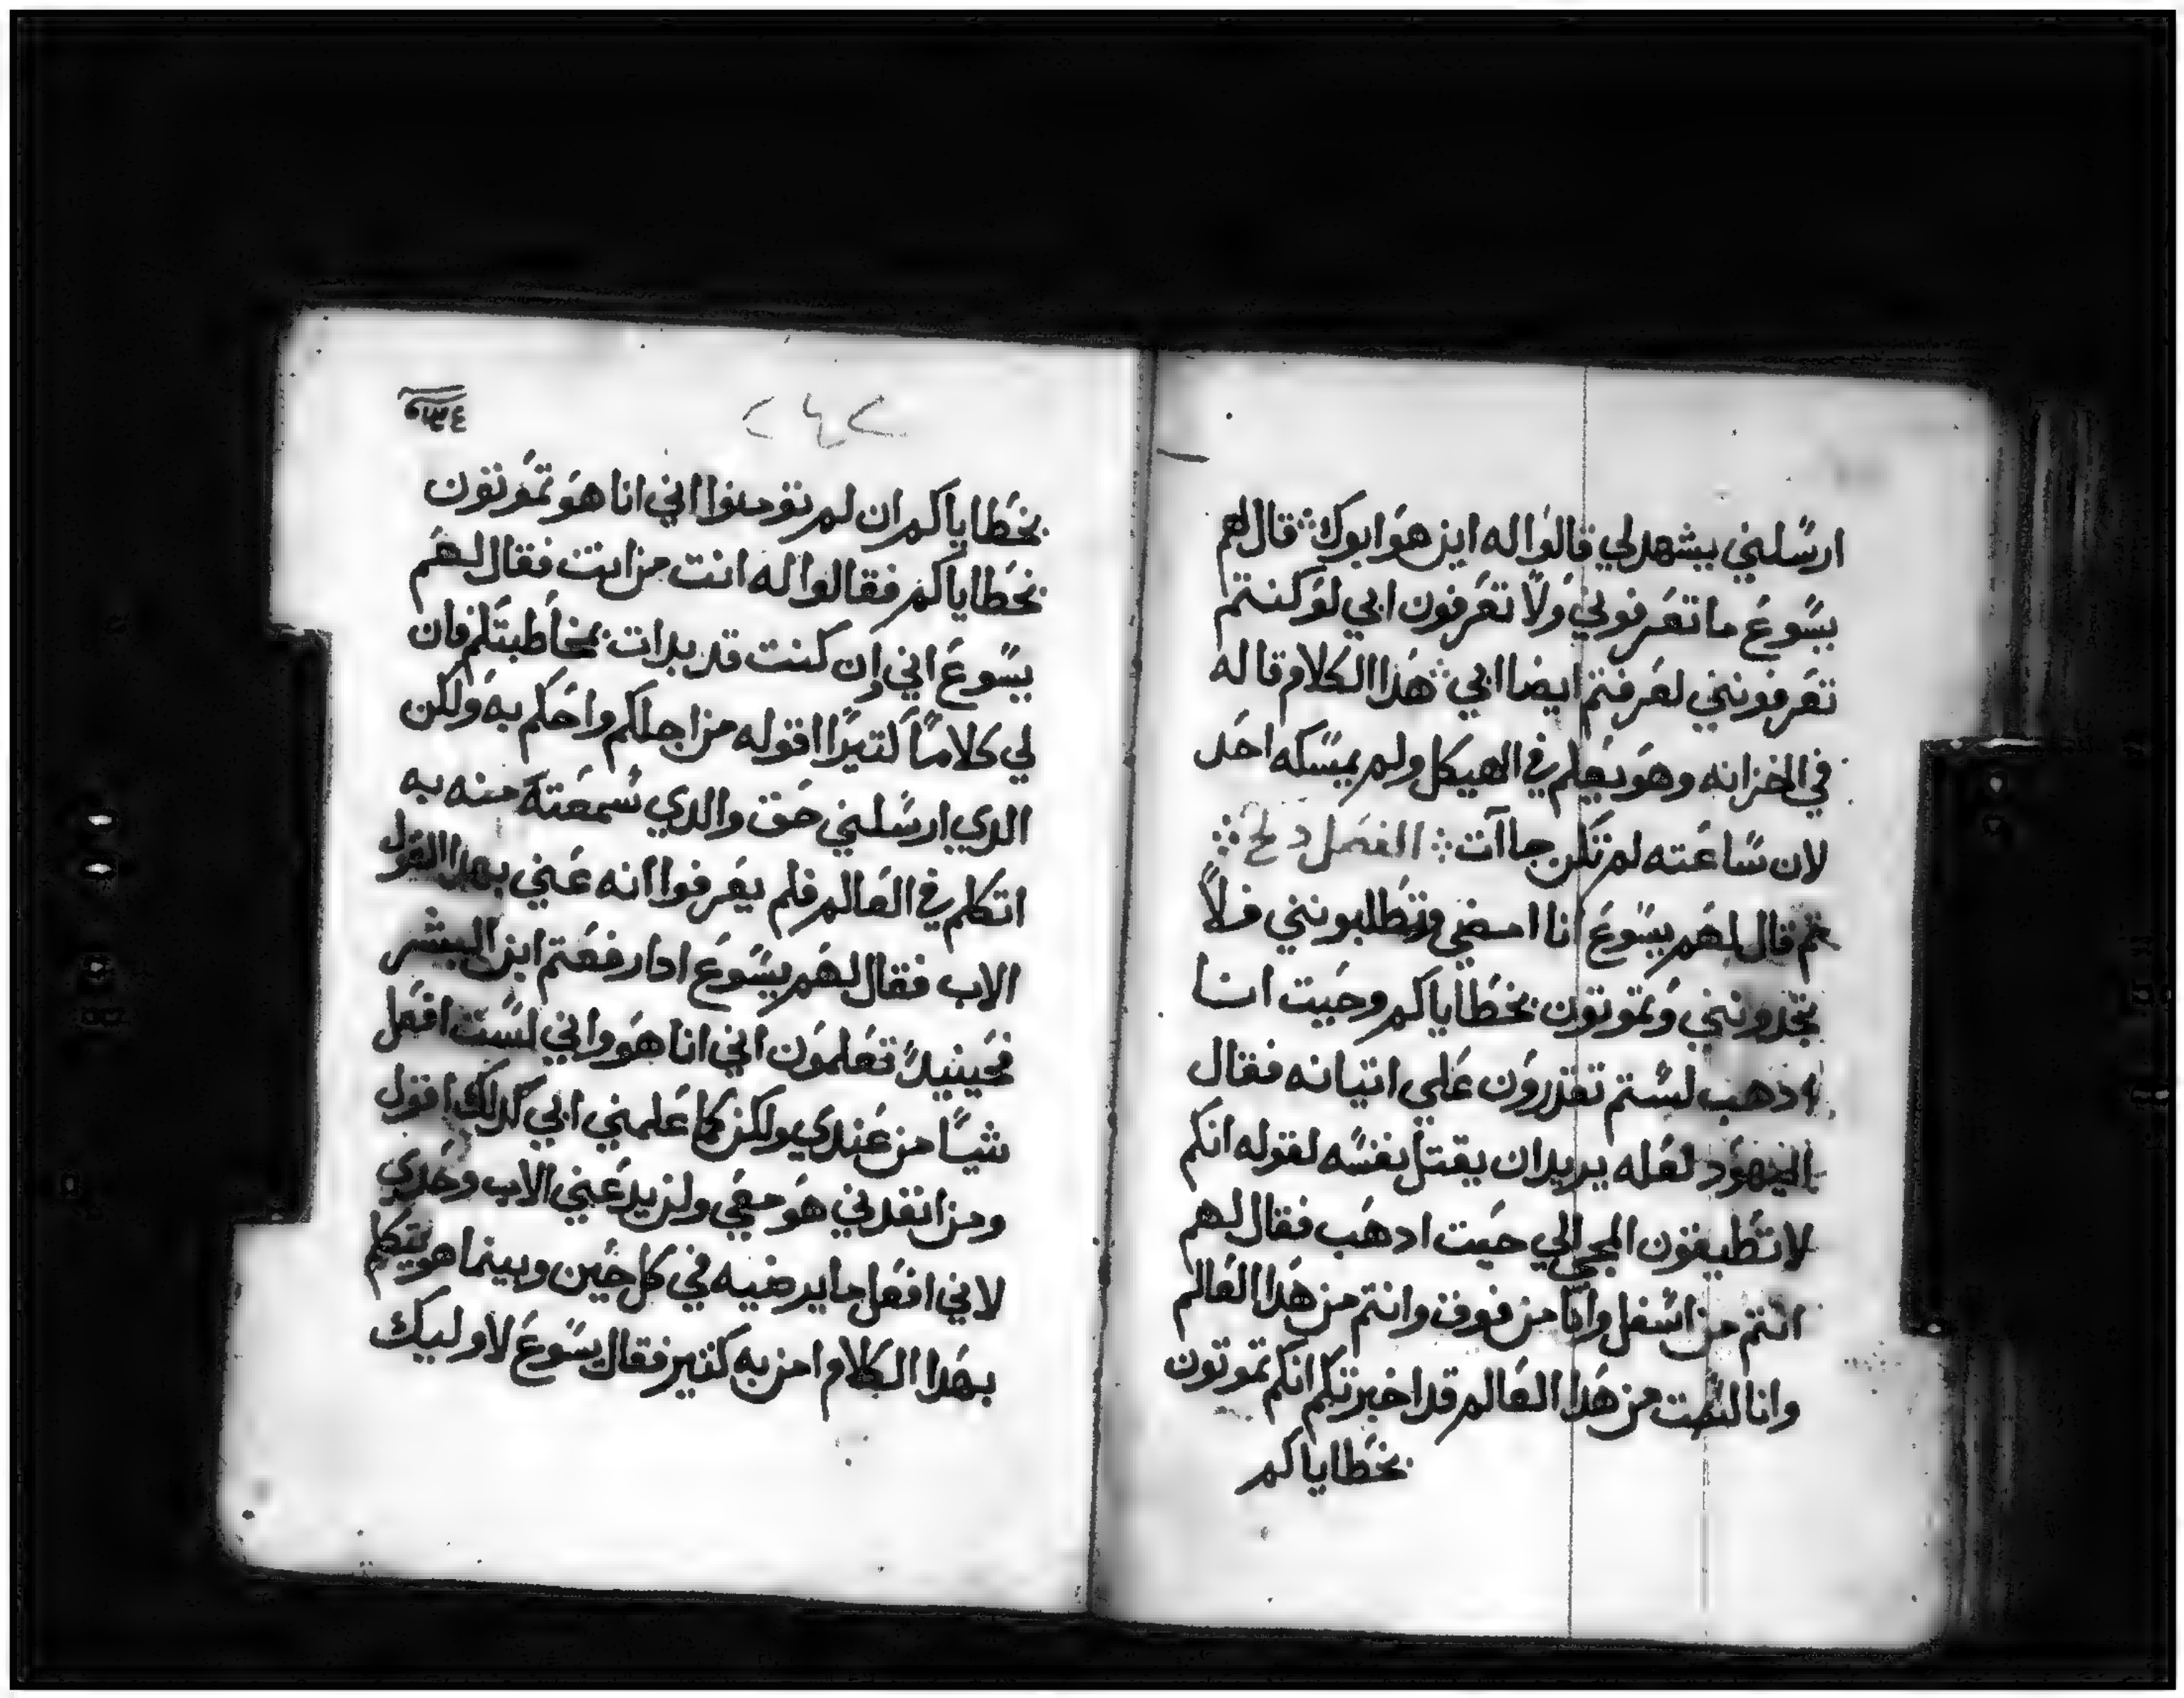 ارسلني يشهد لي قالوا له اين هو ابوك ⁘ قال لهم
يسوع ما تعرفوني ولا تعرفون ابي لو كنتم
تعرفونني لعرفتم ايضا ابي ⁘ هدا الكلام قاله
في الخزانه وهو يعلم في الهيكل ولم يمسكه احد
لان ساعته لم تكن جاات ⁘ الفصل ⁘
ثم قال لهم يسوع انا امضي وتطلبونني فلا
تجدونني وتموتون بخطاياكم وحيت انا
ادهب لستم تقدرون علي اتيانه فقال
اليهود لعله يريد ان يقتل نفسه لقوله انكم
لا تطيقون المجي الي حيت ادهب فقال لهم
انتم من اسفل وانا من فوق وانتم من هدا العالم
وانا لست من هدا العالم قد اخبرتكم انكم تموتون
بخطاياكم
٢٤٢
بخطاياكم ان لم تومنوا اني انا هو تموتون
بخطاياكم فقالوا له انت من انت فقال لهم
يسوع اني وان كنت قد بدات بمخاطبتكم فان
لي كلاما كتيرا اقوله من اجلكم واحكم به ولكن
الدي ارسلني حق والدي سمعته منه به
اتكلم في العالم فلم يعرفوا انه عني بهدا القول
الاب فقال لهم يسوع ادا رفعتم ابن البشر
فحينيد تعلمون اني انا هو واني لست افعل
شيا من عندي ولكن كما علمني ابي كدلك اقول
ومن انفدني هو معي ولن يدعني الاب وحدي
لاني افعل ما يرضيه في كل حين وبينما هو يتكلم
بهدا الكلام امن به كتير فقال يسوع لاوليك